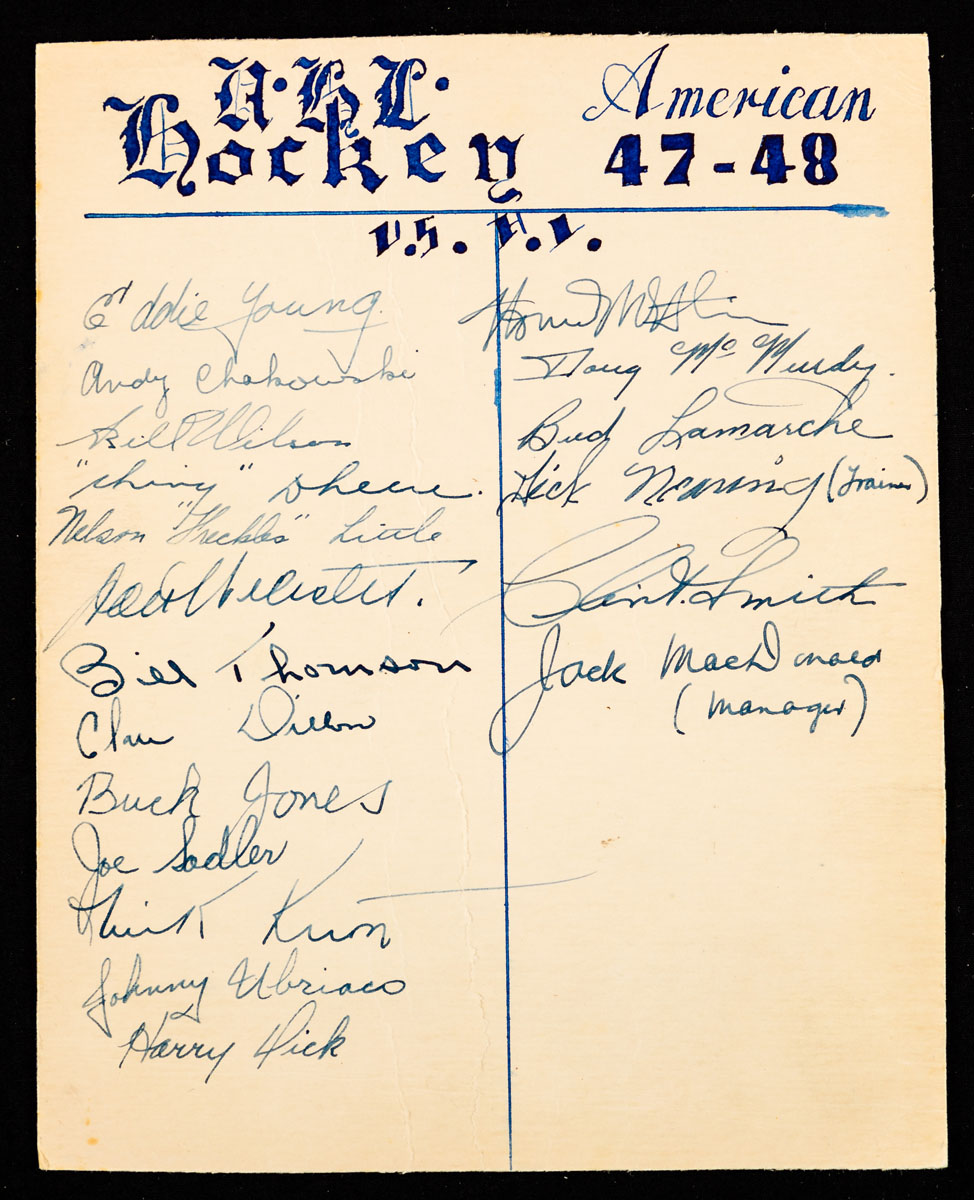 A.H.L.
Hockey
American
47-48
U.S. A.A.
Eddie Young.
Andy Chakowski
Bill Wilson
"Chirny" Sheere.
Nelson "Freckles" Little
Bill Thomson
Clare Dillon
Buck Jones
Joe Sadler
Kuntz
Johnny Ubriaco
Harry Dick
Doug McMurdy.
Bud Lamarche
Dick Nearing (Trainer)
Clint Smith
Jack MacDonald
(Manager)